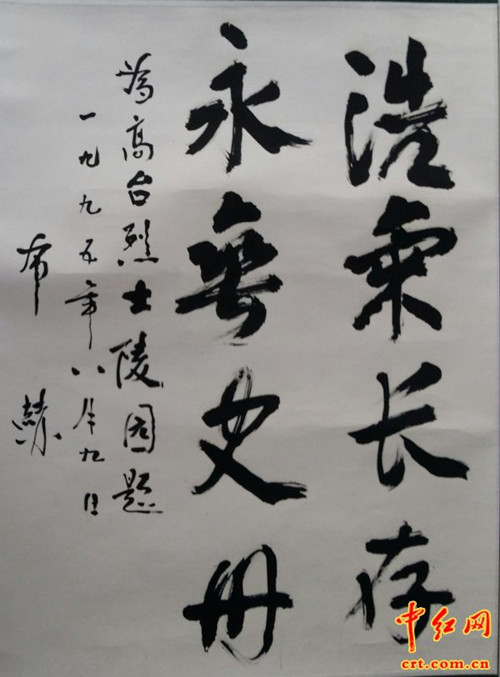 浩氣长存
永垂史册
為高台烈士陵园题
一九九五年八月九日
布赫
中红网
crt.com.cn